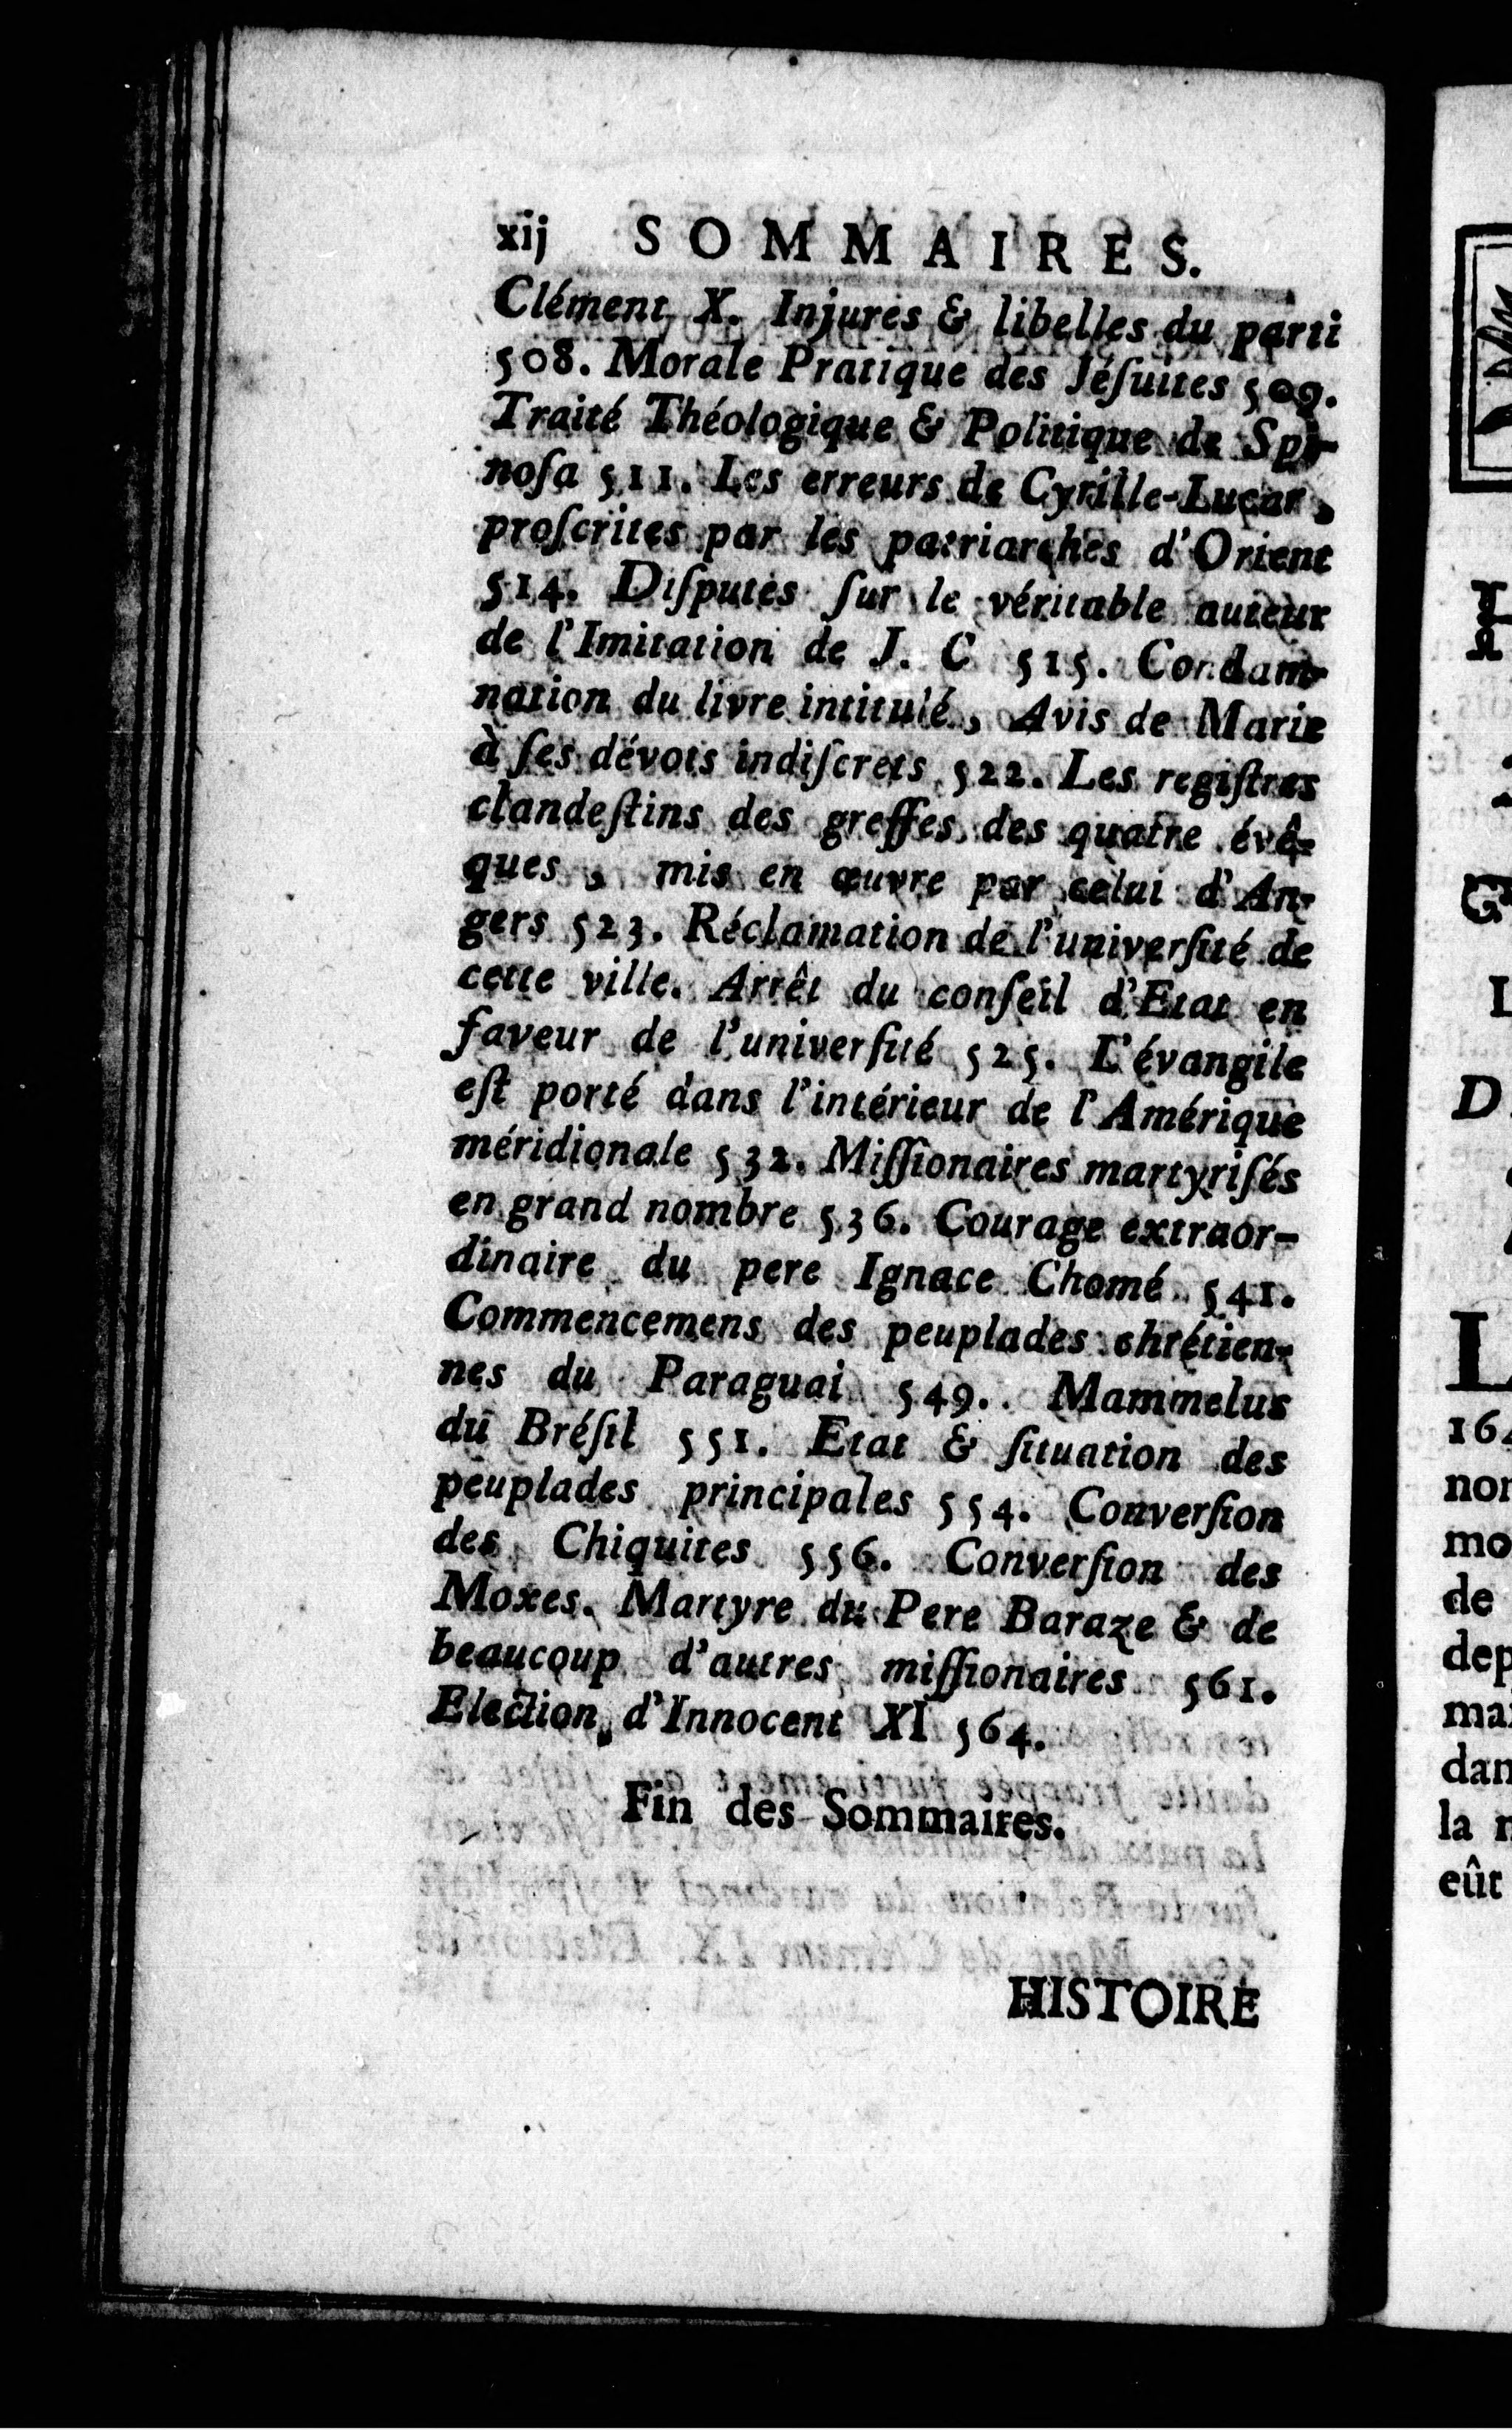 xij SOMMAIRES.
Clément X. Injures & libelles du parti
508. Morale Pratique des Jéſuites 509.
Traité Théologique & Politique de Spi-
noſa 511. Les erreurs de Cyrille-Lucar,
proſcrites par les patriarches d'Orient
514. Diſputes ſur le véritable auteur
de l'Imitation de J. C 515. Condam-
nation du livre intitulé, Avis de Marie
à ſes dévots indiſcrets 522. Les regiſtres
clandeſtins des greffes des quatre évê-
ques, mis en œuvre par celui d'An-
gers 523. Réclamation de l'univerſité de
cette ville. Arrêt du conſeil d'Etat en
faveur de l'univerſité 525. L'évangile
eſt porté dans l'intérieur de l'Amérique
méridionale 532. Miſſionaires martyriſés
en grand nombre 536. Courage extraor-
dinaire du pere Ignace Chomé 541.
Commencemens des peuplades chrétien-
nes du Paraguai 549. Mammelus
du Bréſil 551. Etat & ſituation des
peuplades principales 554. Converſion
des Chiquites 556. Converſion des
Moxes. Martyre du Pere Baraze & de
beaucoup d'autres miſſionaires 561.
Election d'Innocent XI 564.
Fin des Sommaires.
HISTOIRE
G
I
D
L
16
non
mo
de
dep
mai
dan
la
eût